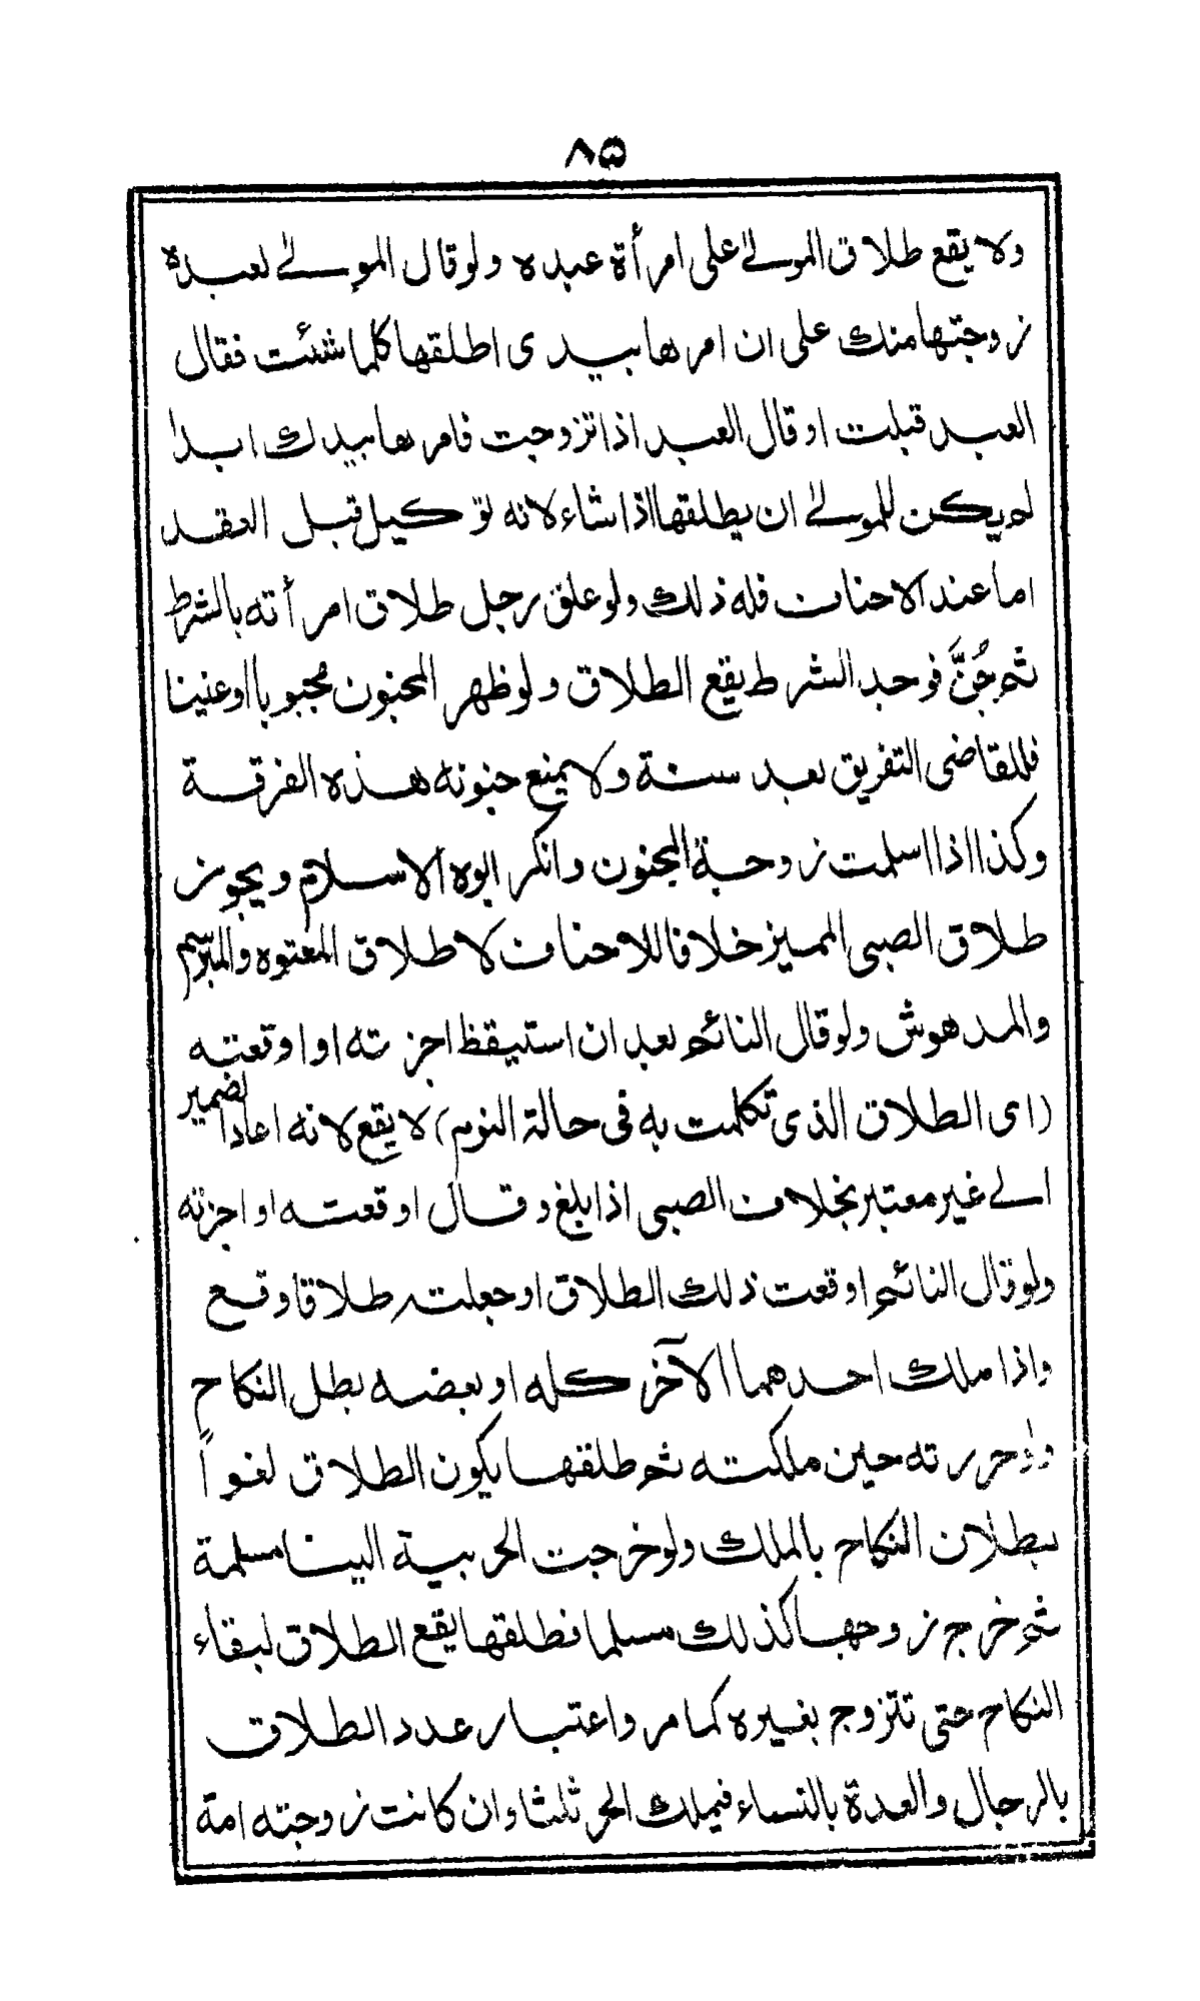 ٨٥
ولا يقع طلاق المولى على امرأة عبده ولو قال المولى لعبده
زوجتها منك على ان امرها بيدى اطلقها كلما شئت فقال
العبد قبلت او قال العبد اذا تزوجت فامرها بيدك ابدا
لم يكن للمولى ان يطلقها اذا شاء لانه توكيل قبل العقد
اما عند الاحناف فله ذلك ولو علق رجل طلاق امرأته بالشرط
ثم جُنَّ فوجد الشرط يقع الطلاق ولو ظهر المجنون مجبوبا او عنينا
فللقاضى التفريق بعد سنة ولا يمنع جنونه هذه الفرقة
وكذا اذا اسلمت زوجة المجنون وانكر ابوه الاسلام ويجوز
طلاق الصبى المميز خلافا للاحناف لا طلاق المعتوه والمبرسم
والمدهوش ولو قال النائم بعد ان استيقظ اجزته او اوقعته
(اى الطلاق الذى تكلمت به فى حالة النوم) لا يقع لانه اعاد الضمير
الى غير معتبر بخلاف الصبى اذا بلغ وقال اوقعته او اجزته
ولو قال النائم اوقعت ذلك الطلاق او جعلته طلاقا وقع
واذا ملك احدهما الآخر كله او بعضه بطل النكاح
ولو حررته حين ملكته ثم طلقها يكون الطلاق لغواً
ببطلان النكاح بالملك ولو خرجت الحربية الينا مسلمة
ثم خرج زوجها كذلك مسلما فطلقها يقع الطلاق لبقاء
النكاح حتى تتزوج بغيره كما مر واعتبار عدد الطلاق
بالرجال والعدة بالنساء فيملك الحر ثلثا وان كانت زوجته امة